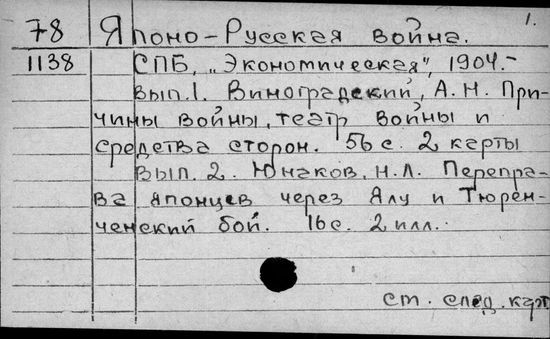 1.
78 Японо-Русская война.
1138 СПБ, „Экономическая", 1904.-
вып.1. Виноградский, А.Н. При-
чины войны, театр войны и
средства сторон. 56 с. 2 карты
вып. 2. Юнаков, Н.Л. Перепра-
ва японцев через Ялу и Тюрен-
ченский бой. 16 с. 2 илл.
ст. след. карт